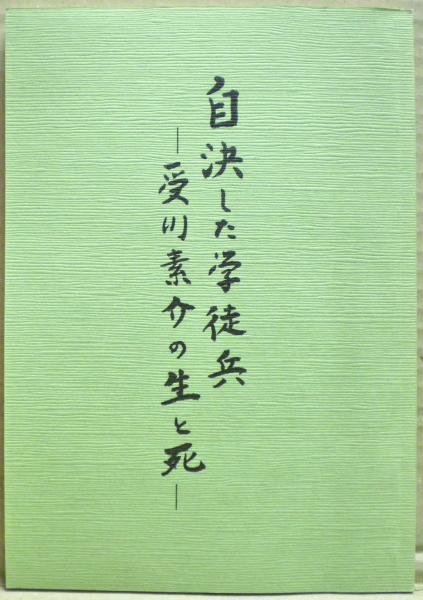 自決した学徒兵
―受川素介の生と死―